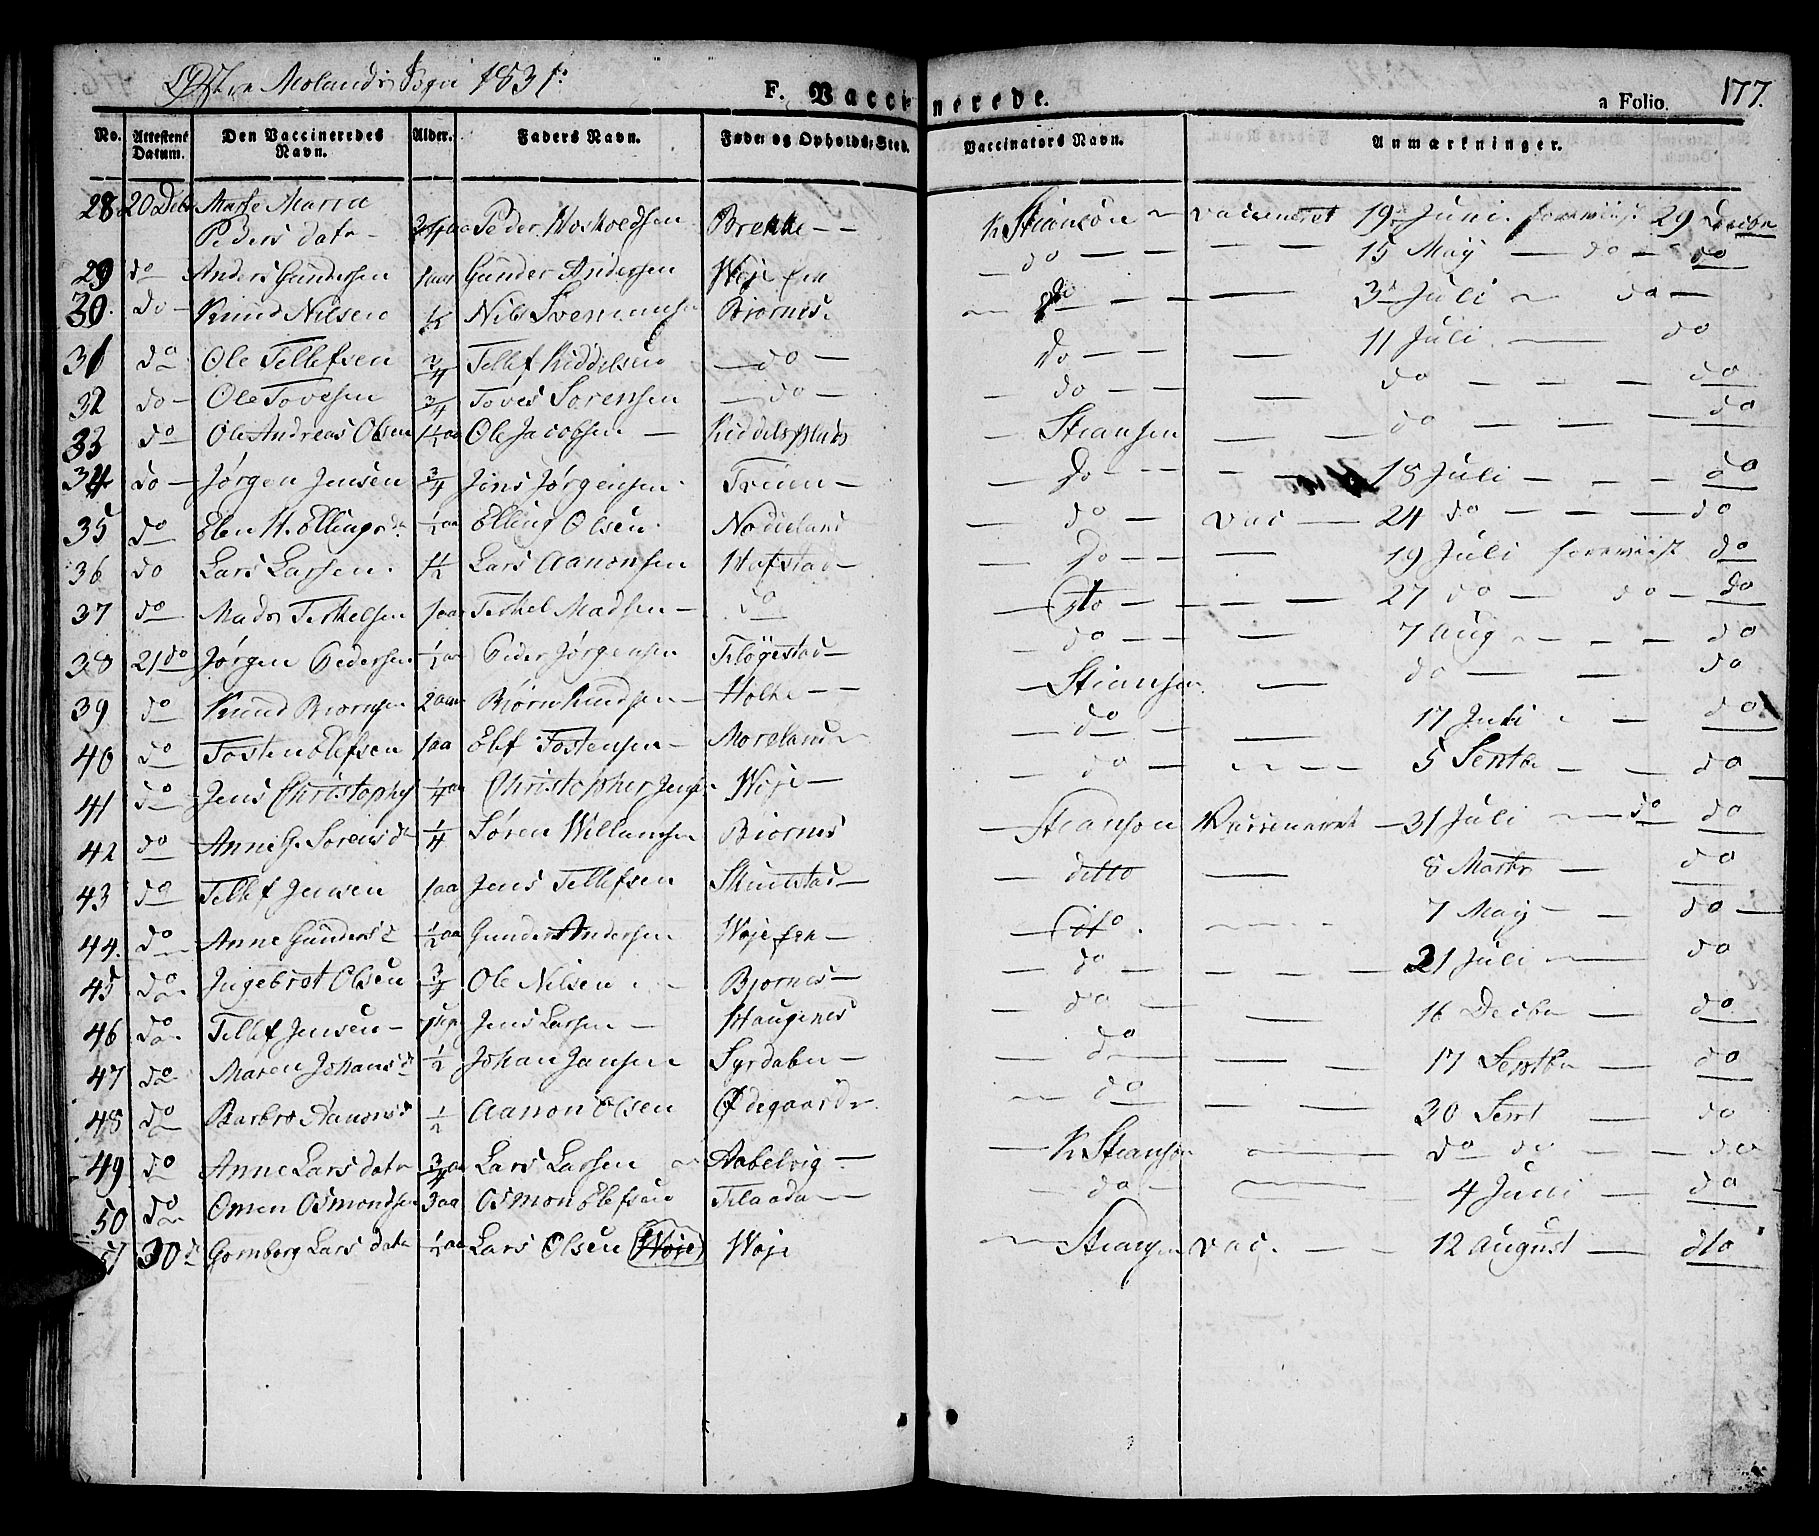 Østre Molands Sogn 1831. F. Vaccinerede. a Folio. 177.
No. Attestens Datum. Den Vaccineredes Navn. Alder. Faders Navn. Føde og Opholds-Sted. Vaccinators Navn. Anmærkninger.
28 20 Debr Marte Maria
Peders datr Peder Hoskoldsen Brekke K Stiansøn vaccineret 19 Juni foreviist 29 Decbr
29 do Anders Gundersen 1aar Gunder Andersen Woje do 15 May do do
30 do Knud Nilsen 1/2 Nils Bjornes do 3 Juli do
31 do Ole Tellefsen 3/4 Tellef Kiddelsen do do 11 Juli do
32 do Ole Tovesen 3/4 Toves Sorensen do do do do
33 do Ole Andreas Olsen Ole Jacobsen Kiddelsplads Stiansen do do
34 do Jørgen Jensen 3/4 Jens Jørgensen do 18 Juli do
35 do Elen H. Ellings d. Elling Olsen Nodeland do vac 24 do do
36 do Lars Larsen 1 1/2 Lars Aanonsen Hafstad do 19 Juli foreviist do
37 do Mads Terkelsen 1aa Terkel Madsen do do 27 do do do
38 21 do Jørgen Pedersen Peder Jørgensen Fløgestad do 7 Aug do
39 do Knud Biornsen 2aa Biørn Knudsen Holte Stiansen do do
40 do Tosten Elefsen 1aa Elef Tostensen Moreland do 17 Juli do
41 do Jens Christophs 1/4 Christopher Jens Woje do 5 Septbr do
42 do Anne G. Sorens d 1/4 Søren Willumsen Biornes Stiansøn Vaccineret 31 Juli do do
43 do Tellef Jensen 1aa Jens Tellefsen ditto 8 do
44. do Anne Gunders d 1/2 Gunder Andersen Woje dito. 7 May do
45 do Ingebrot Olsen 3/4 Ole Nilsen Bjornes do 21 Juli do
46 do Tellef Jensen Jens Larsen Haugenes do 16 Decbr do
47 do Maren Johans d 1/2 Johan Jansen Syrdalen do 17 Septbr do
48 do Barbro Aanons d 1/2 Aanon Olsen Ødegaard do 30 Sept do
49 do Anne Lars datr 3/4 Lars Larsen Aabelvig K Stiansøn do do do
50 do Omen Osmondsen 3aa Osmon Elefsen Flaadan do 4 Juni do
51 30 d Gomborg Lars datr Lars Olsen Woje Woje Stiansen vac. 12 August dto